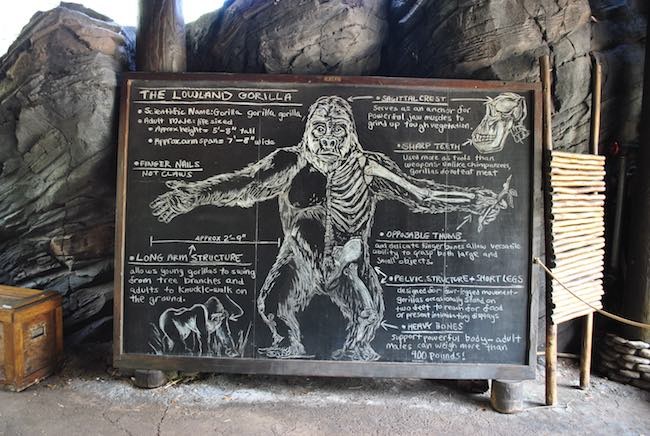 THE LOWLAND GORILLA
• Scientific Name: Gorilla gorilla gorilla
• Adult Male: life sized
• Approx height = 5'-8" tall
• Approx arm span = 7'-8" wide
• FINGER NAILS
NOT CLAWS
APPROX 2'-9"
• LONG ARM STRUCTURE
allows young gorillas to swing
from tree branches and
adults to knuckle-walk
on the ground.
• SAGITTAL CREST
Serves as an anchor for
powerful jaw muscles to
grind up tough vegetation.
• SHARP TEETH
Used more as tools than
weapons- Unlike chimpanzees,
gorillas do not eat meat
• OPPOSABLE THUMB
and delicate finger bones allow versatile
ability to grasp both large and
small objects.
• PELVIC STRUCTURE + SHORT LEGS
designed for four-legged movement-
gorillas occasionally stand on
two feet to reach for food
or present intimidating displays
• HEAVY BONES
support powerful body- adult
males can weigh more than
400 pounds!